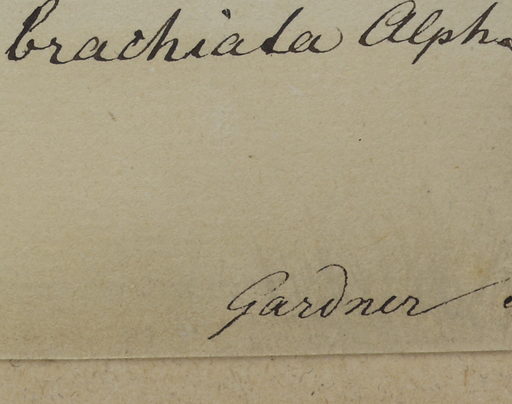 brachiata Alph
Gardner